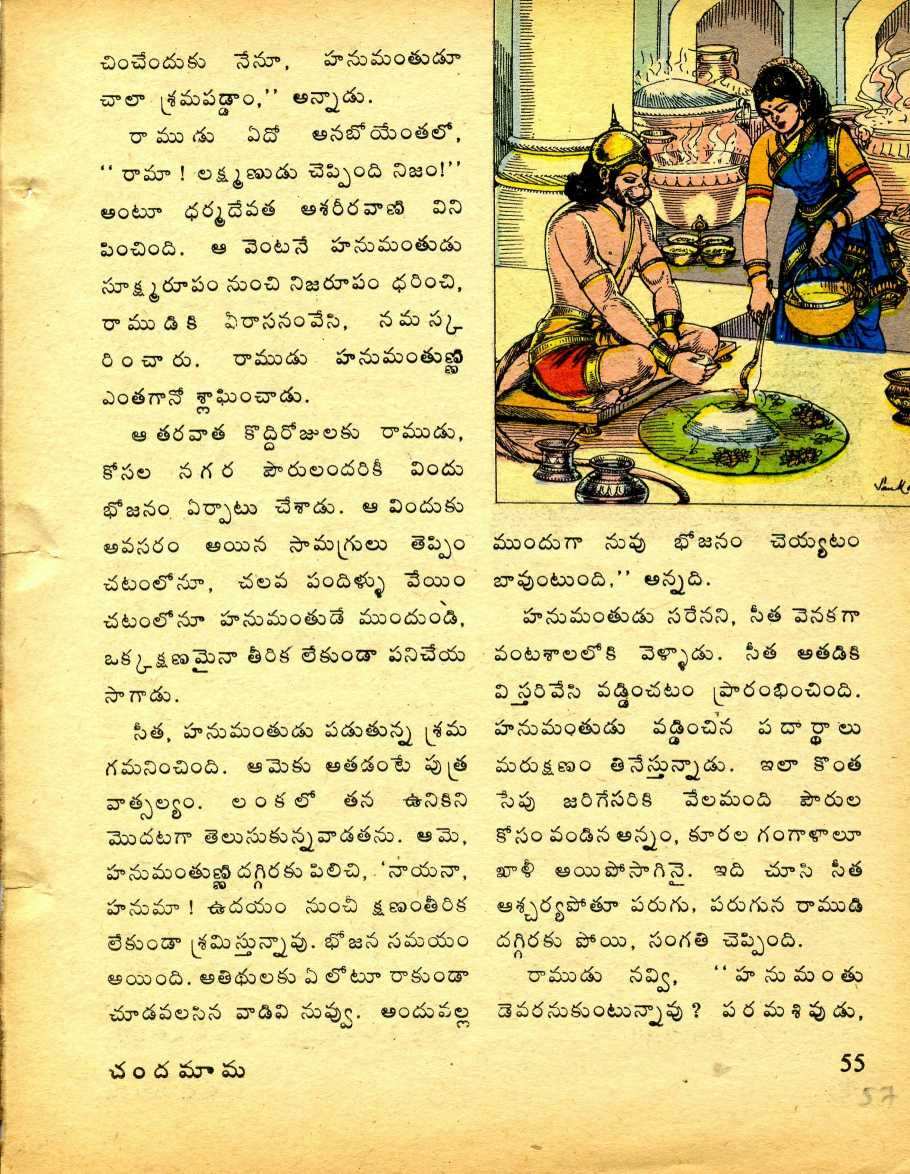 చించేందుకు నేనూ, హనుమంతుడూ
చాలా శ్రమపడ్డాం,'' అన్నాడు.
రాముడు ఏదో అనబోయేంతలో,
'' రామా ! లక్ష్మణుడు చెప్పింది నిజం!''
అంటూ ధర్మదేవత అశరీరవాణి విని
పించింది. ఆ వెంటనే హనుమంతుడు
సూక్ష్మరూపం నుంచి నిజరూపం ధరించి,
రాముడికి వీరాసనంవేసి, నమస్క
రించారు. రాముడు హనుమంతుణ్ణి
ఎంతగానో శ్లాఘించాడు.
ఆ తరవాత కొద్దిరోజులకు రాముడు,
కోసల నగర పౌరులందరికీ విందు
భోజనం ఏర్పాటు చేశాడు. ఆ విందుకు
అవసరం అయిన సామగ్రులు తెప్పిం
చటంలోనూ, చలవ పందిళ్ళు వేయిం
చటంలోనూ హనుమంతుడే ముందుండి,
ఒక్కక్షణమైనా తీరిక లేకుండా పనిచేయ
సాగాడు.
సీత, హనుమంతుడు పడుతున్న శ్రమ
గమనించింది. ఆమెకు అతడంటే పుత్ర
వాత్సల్యం. లంకలో తన ఉనికిని
మొదటగా తెలుసుకున్నవాడతను. ఆమె,
హనుమంతుణ్ణి దగ్గిరకు పిలిచి, 'నాయనా,
హనుమా ! ఉదయం నుంచీ క్షణంతీరిక
లేకుండా శ్రమిస్తున్నావు. భోజన సమయం
అయింది. అతిథులకు ఏ లోటూ రాకుండా
చూడవలసిన వాడివి నువ్వు. అందువల్ల
ముందుగా నువు భోజనం చెయ్యటం
బావుంటుంది,'' అన్నది.
హనుమంతుడు సరేనని, సీత వెనకగా
వంటశాలలోకి వెళ్ళాడు. సీత అతడికి
విస్తరివేసి వడ్డించటం ప్రారంభించింది.
హనుమంతుడు వడ్డించిన పదార్థాలు
మరుక్షణం తినేస్తున్నాడు. ఇలా కొంత
సేపు జరిగేసరికి వేలమంది పౌరుల
కోసం వండిన అన్నం, కూరల గంగాళాలూ
ఖాళీ అయిపోసాగినై. ఇది చూసి సీత
ఆశ్చర్యపోతూ పరుగు, పరుగున రాముడి
దగ్గిరకు పోయి, సంగతి చెప్పింది.
రాముడు నవ్వి, ''హనుమంతు
డెవరనుకుంటున్నావు ? పరమశివుడు,
చందమామ
55
57